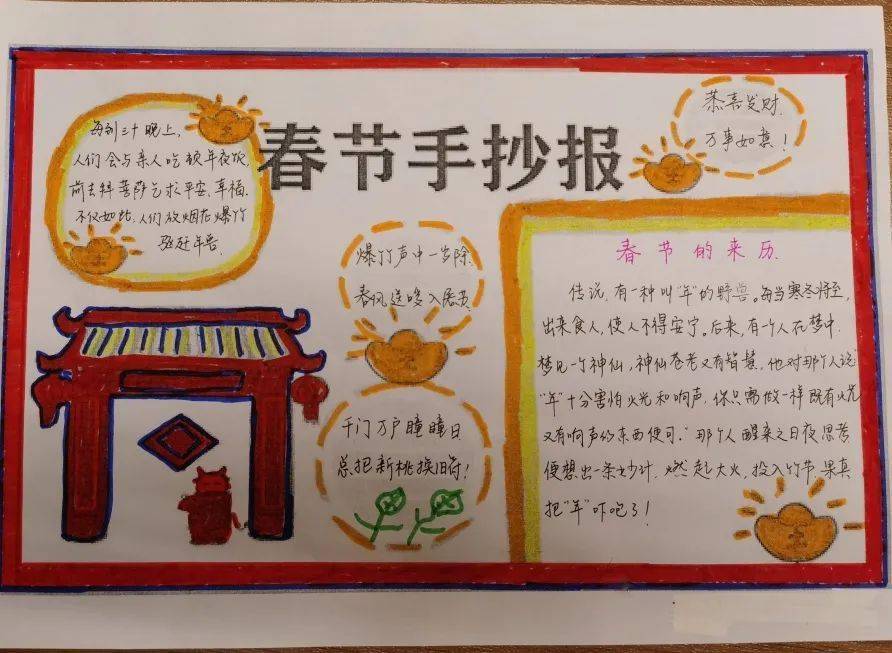 春节手抄报
每到三十晚上,
人们会与亲人吃顿年夜饭
前去拜菩萨乞求平安、幸福.
不仅如此,人们放烟花爆竹
驱赶年兽.
恭喜发财.
万事如意!
爆竹声中一岁除.
春风送暖入屠苏.
千门万户曈曈日
总把新桃换旧符!
春节的来历.
传说,有一种叫"年"的野兽。每当寒冬将至,
出来食人,使人不得安宁。后来,有一个人在梦中
梦见一个神仙,神仙苍老又有智慧,他对那个人说
"年"十分害怕火光和响声,你只需做一样既有火光
又有响声的东西便可."那个人醒来之日夜思考
便想出一条妙计.燃起大火,投入竹节,果真
把"年"吓跑了!